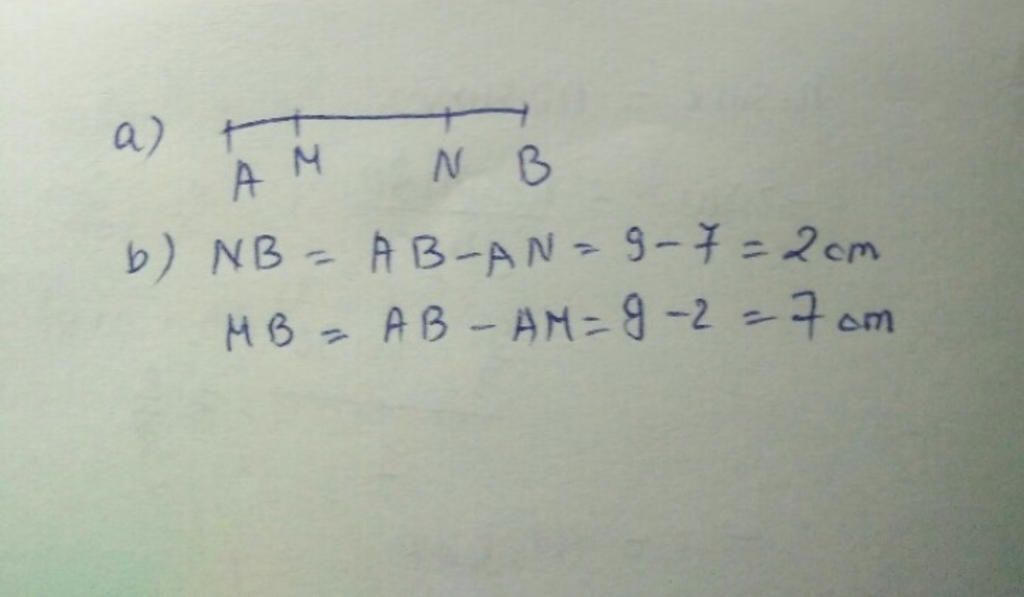 a)
A M N B
b) NB = AB - AN = 9 - 7 = 2 cm
MB = AB - AM = 9 - 2 = 7 cm